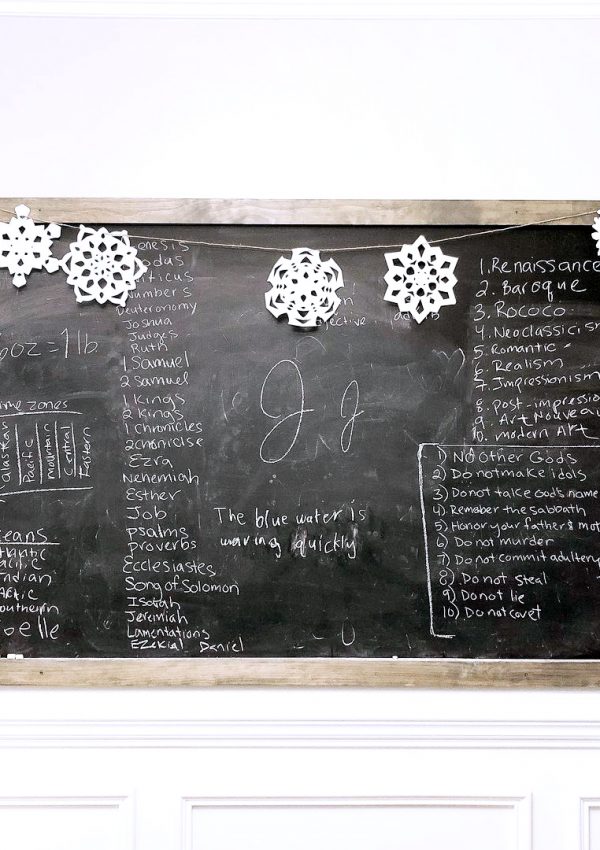 6oz=1lb.
me zones
alaskan
Pacific
mountain
Central
Eastern
eans
lantic
acific
ndian
rctic
outhern
oelle
enesis
odus
iticus
Numbers
Deuteronomy
Joshua
Judges
Ruth
1 Samuel
2 Samuel
1 kings
2 kings
1 chronicles
2 chroniclse
Ezra
Nehemiah
Esther
Job
psalms
proverbs
Ecclesiastes
Song of Solomon
Isaiah
Jeremiah
Lamentations
Ezekial Daniel
ective
J j
The blue water is
waving quickly
1. Renaissance
2. Baroque
3. Rococo
4. Neoclassicism
5. Romantic
6. Realism
7. Impressionism
8. post-impressio
9. Art Nouveau
10. modern Art
1) No Other Gods
2) Do not make idols
3) Do not take God's name
4) Remember the sabbath
5) Honor your father & mot
6) Do not murder
7) Do not commit adultery
8) Do not steal
9) Do not lie
10) Do not covet